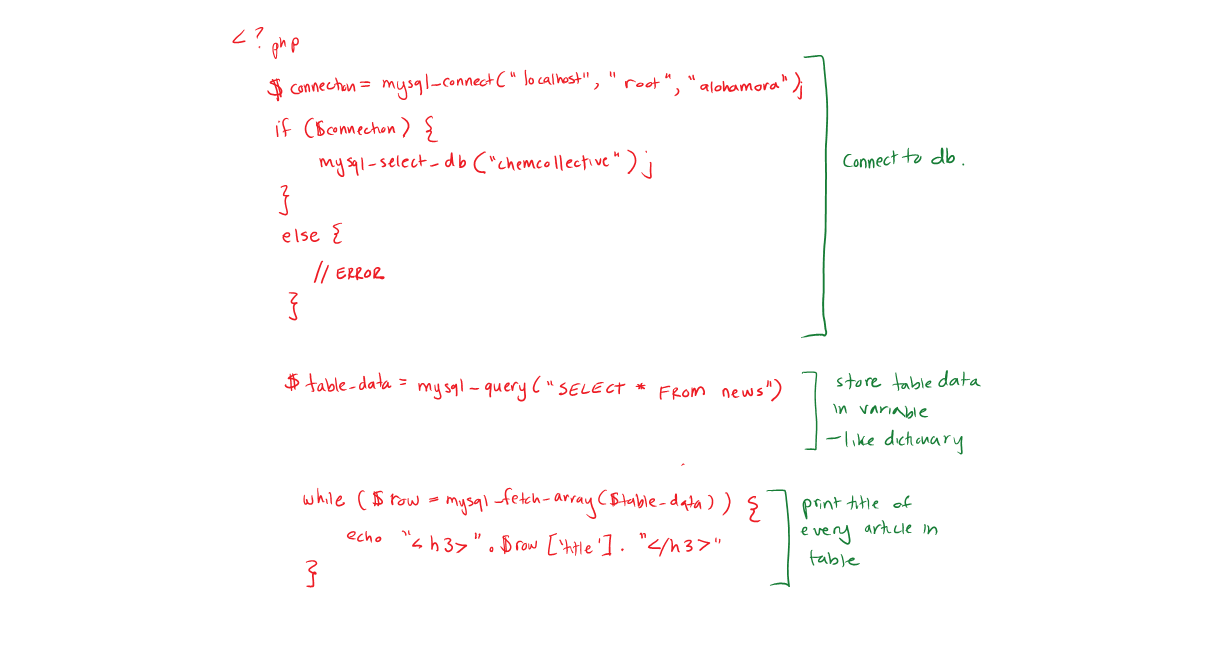 <?php
$connection = mysql_connect("localhost", "root", "alohamora");
if ($connection) {
mysql_select_db("chemcollective");
}
else {
// ERROR
}
Connect to db.
$table_data = mysql_query("SELECT * FROM news")
store table data
in variable
- like dictionary
while ($row = mysql_fetch_array($table_data)) {
echo "<h3>".$row['title']. "</h3>"
}
print title of
every article in
table